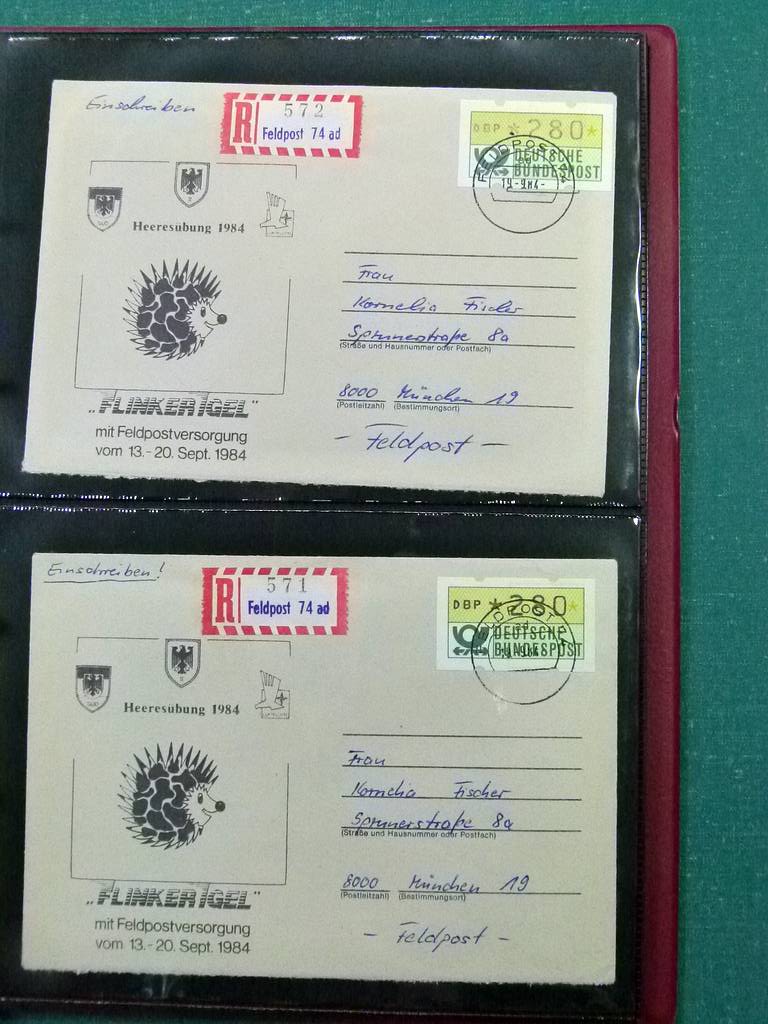 Einschreiben
R 572
Feldpost 74 ad
DBP *280*
DEUTSCHE
BUNDESPOST
FELDPOST
19.-9.84-
SÜD
II
Heeresübung 1984
Frau
Kornelia Fischer
Sprunerstraße 8a
(Straße und Hausnummer oder Postfach)
8000 München 19
(Postleitzahl) (Bestimmungsort)
- Feldpost -
„FLINKER IGEL"
mit Feldpostversorgung
vom 13.-20. Sept. 1984
Einschreiben!
R 571
Feldpost 74 ad
DBP *280*
DEUTSCHE
BUNDESPOST
FELDPOST
ad
SÜD
II
Heeresübung 1984
Frau
Kornelia Fischer
Sprunerstraße 8a
(Straße und Hausnummer oder Postfach)
8000 München 19
(Postleitzahl) (Bestimmungsort)
- Feldpost -
„FLINKER IGEL"
mit Feldpostversorgung
vom 13.-20. Sept. 1984